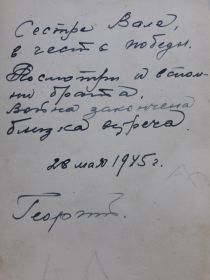 Сестре Вале,
в честь победы.
Посмотри и вспом-
ни брата,
Война закончена
близка встреча.
28 мая 1945 г.
Георгий.